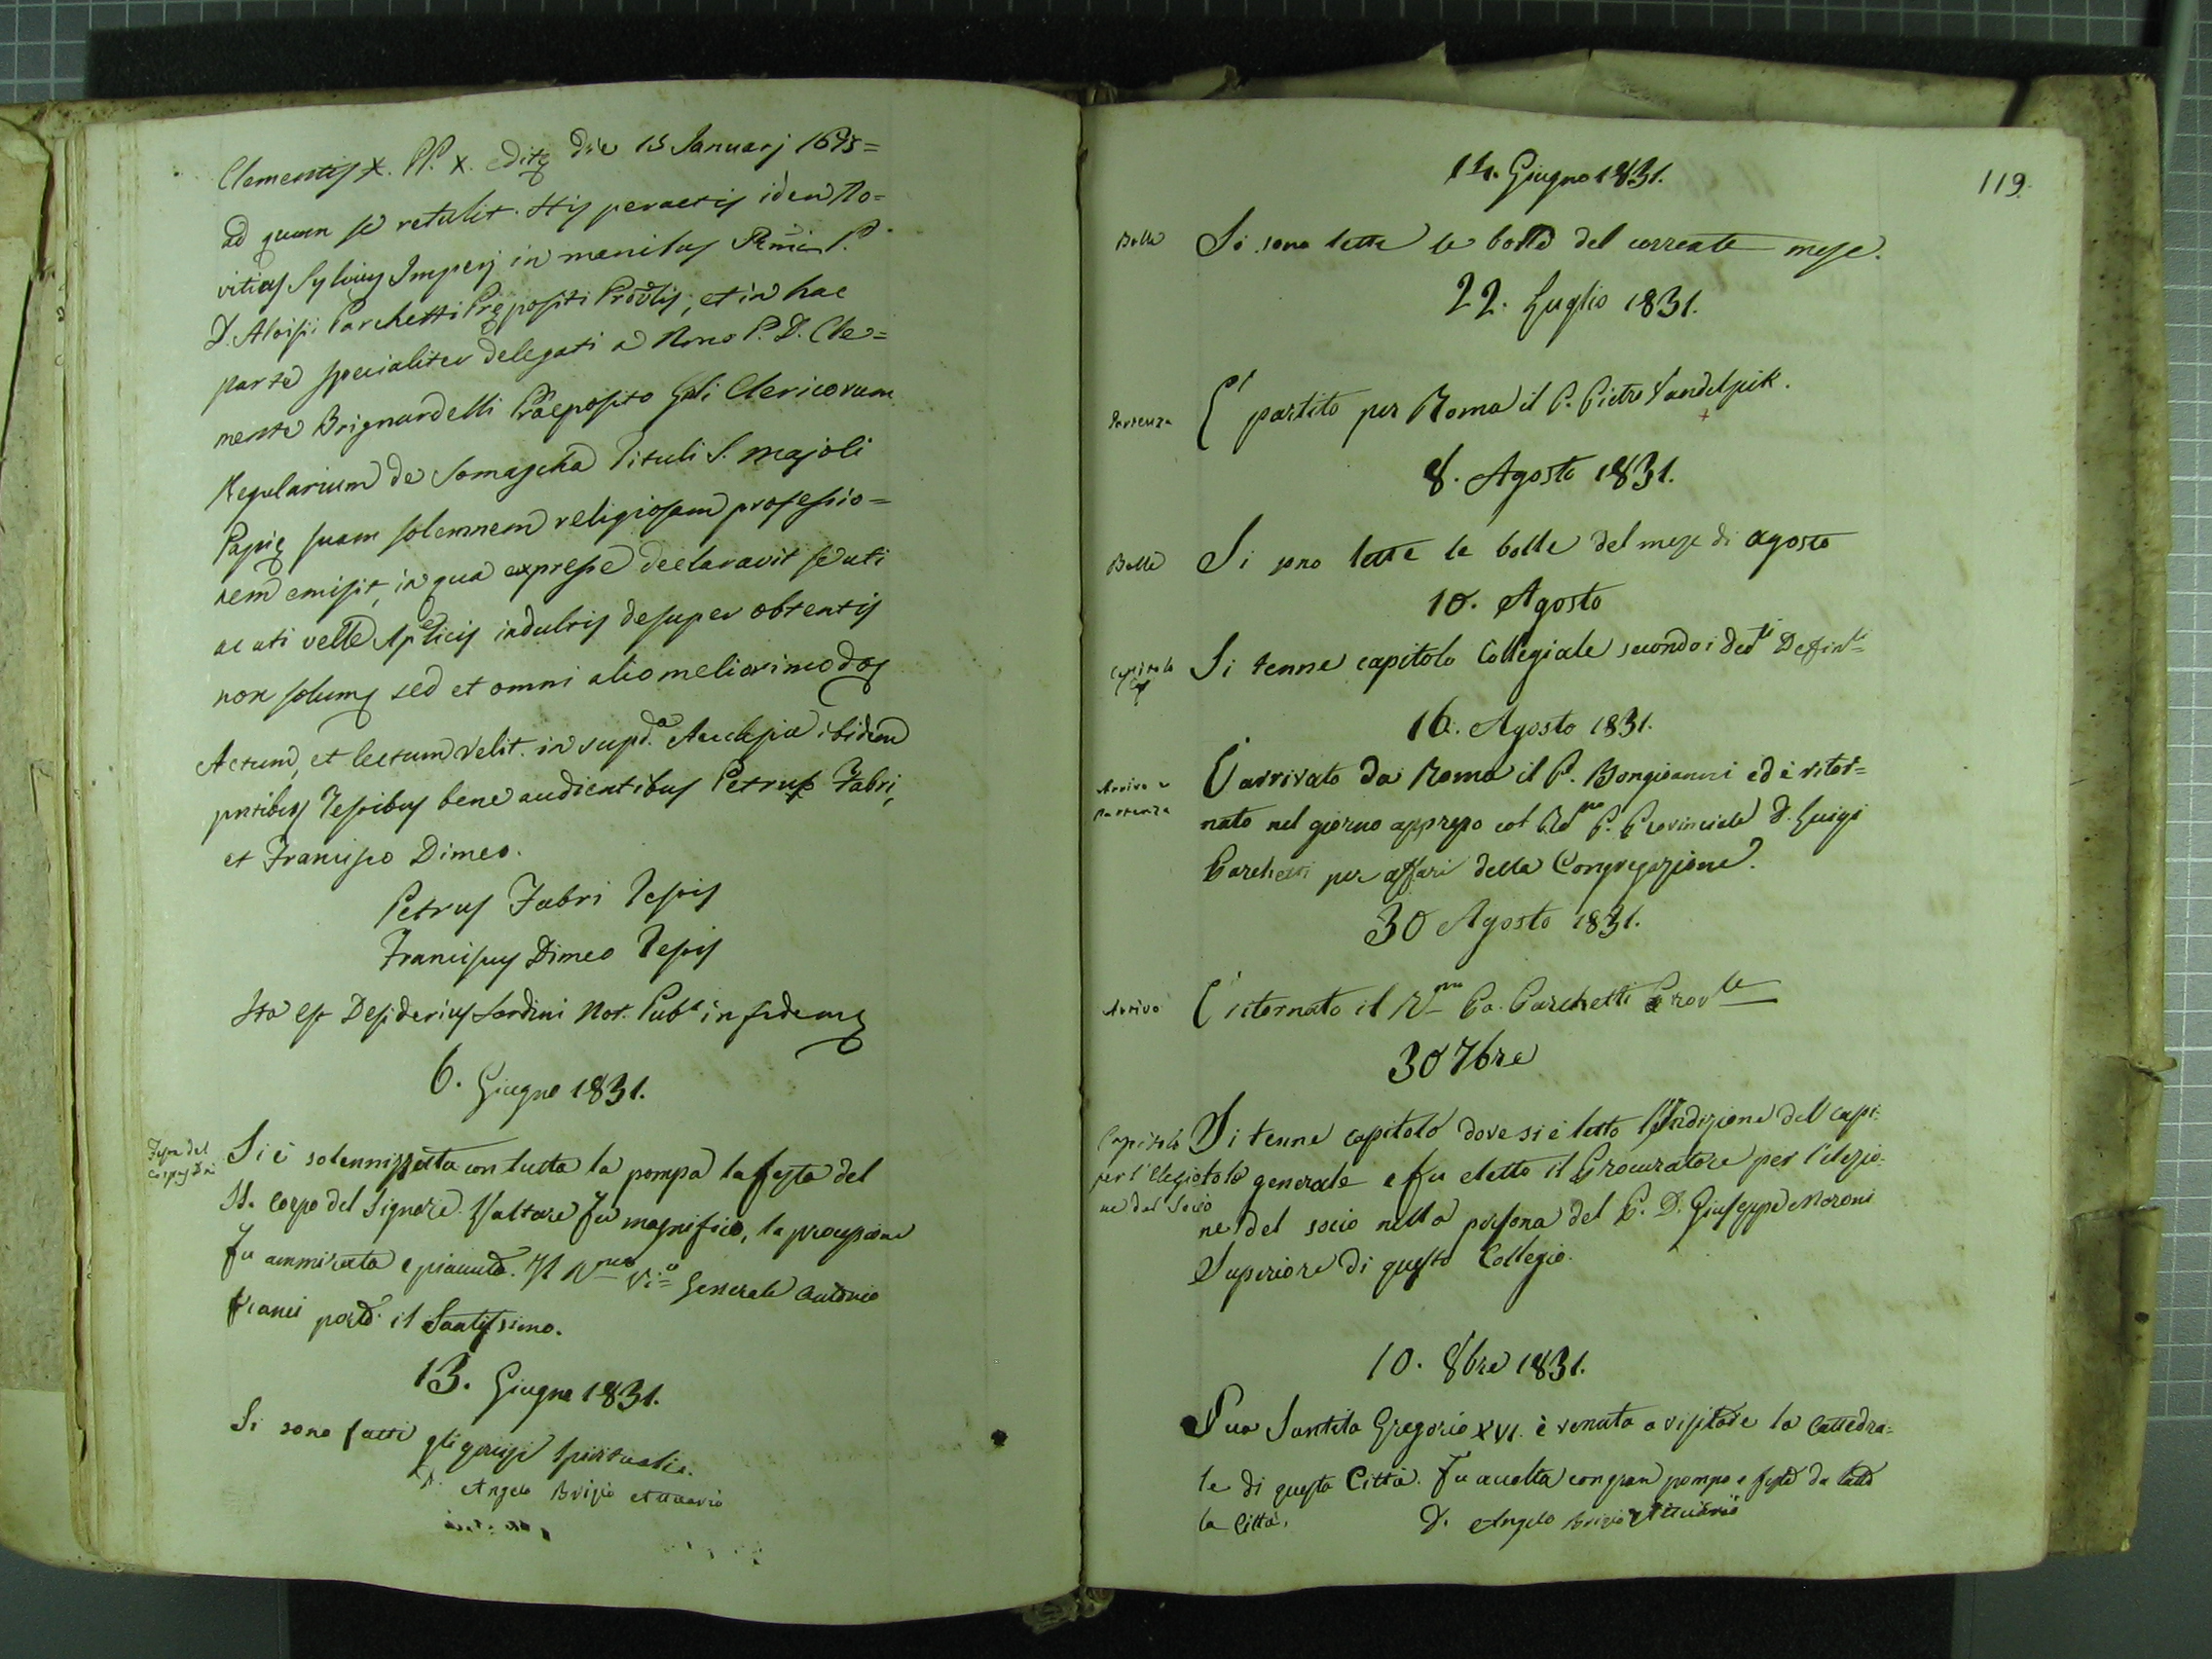 Clementis X. PP. X. editę die 15 Januarj 1675=
ad quam se retulit. His peractis idem No=
vitius Sylvius Imperj in manibus Rmi P.
D. Aloisii Parchetti Prępositi Provlis, et in hac
parte specialiter delegati a Rmo P. D. Cle=
mente Brignardelli Praeposito Gnli Clericorum
Regularium de Somascha Tituli S. Majoli
Papię suam solemnem religiosam professio=
nem emisit, in qua expresse declaravit se uti
ac uti velle Aplicis indultis desuper obtentis
non solum sed et omni alio meliori modo
Actum, et lectum Velit. in supda Ecclesia ibidem
pntibus Testibus bene audientibus Petrus Fabri,
et Francisco Dimeo.
Petrus Fabri Testis
Franciscus Dimeo Testis
Ita est Desiderius Sardini Not. Pubs in fidem
6. Giugno 1831.
Festa del
Corpus Dni
Si è solennizzata con tutta la pompa la festa del
SS. Corpo del Signore. L'altare fu magnifico, la processione
fu ammirata e piacuta. Il Rmo Vio Generale Antonio
Franci portò il Santissimo.
13. Giugno 1831.
Si sono fatti gli esercizi spirituali.
D. Angelo Brizio Attuario
119.
14. Giugno 1831.
Bolle
Si sono lette le bolle del corrente mese.
22. Luglio 1831.
Partenza
E' partito per Roma il P. Pietro Vandelpik.
8. Agosto 1831.
Bolle
Si sono lette le bolle del mese di agosto
10. Agosto
Capitolo
Si tenne capitolo Collegiale secondo i deti Definti
16. Agosto 1831.
Arrivo e
partenza
E' arrivato da Roma il P. Bongioanni ed è ritor=
nato nel giorno appresso col Rdmo P. Provinciale D. Luigi
Parchetti per affari della Congregazione.
30 Agosto 1831.
Arrivo
E' ritornato il Rmo Pa. Parchetti Provle
30 7bre
Capitolo
per l'elezio
ne del Socio
Si tenne capitolo dove si è letto l'Indizione del capi:
tolo generale e fu eletto il Procuratore per l'elezio:
ne del socio nella persona del P. D. Giuseppe Moroni
Superiore di questo Collegio.
10. 8bre 1831.
Sua Santità Gregorio XVI. è venuto a visitare la Cattedra:
le di questa Città. Fu accolta con gran pompa e festa da tutta
la Città.
D. Angelo Brizio Attuario